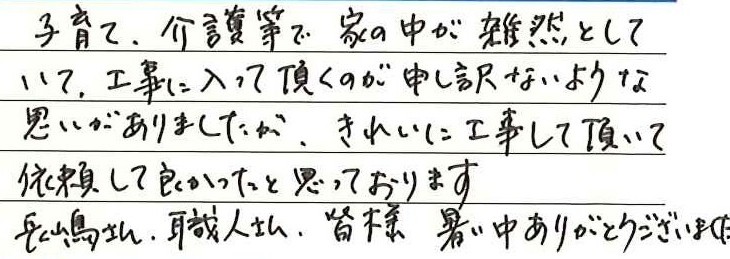 子育て、介護等で 家の中が 雑然として
いて、工事に入って頂くのが申し訳ないような
思いがありましたが、きれいに工事して頂いて
依頼して良かったと思っております
長嶋さん、職人さん、皆様 暑い中ありがとうございました